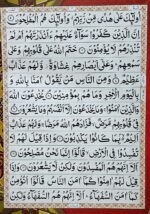 اُولٰٓئِكَ عَلٰى هُدًى مِّنْ رَّبِّهِمْ وَاُولٰٓئِكَ هُمُ الْمُفْلِحُوْنَ
اِنَّ الَّذِيْنَ كَفَرُوْا سَوَآءٌ عَلَيْهِمْ ءَاَنْذَرْتَهُمْ اَمْ لَمْ
تُنْذِرْهُمْ لَا يُؤْمِنُوْنَ خَتَمَ اللّٰهُ عَلٰى قُلُوْبِهِمْ وَعَلٰى
سَمْعِهِمْ وَعَلٰٓى اَبْصَارِهِمْ غِشَاوَةٌ وَّلَهُمْ عَذَابٌ
عَظِيْمٌ وَمِنَ النَّاسِ مَنْ يَّقُوْلُ اٰمَنَّا بِاللّٰهِ وَ
بِالْيَوْمِ الْاٰخِرِ وَمَا هُمْ بِمُؤْمِنِيْنَ يُخٰدِعُوْنَ اللّٰهَ
وَالَّذِيْنَ اٰمَنُوْا وَمَا يَخْدَعُوْنَ اِلَّآ اَنْفُسَهُمْ وَمَا يَشْعُرُوْنَ
فِيْ قُلُوْبِهِمْ مَّرَضٌ فَزَادَهُمُ اللّٰهُ مَرَضًا وَلَهُمْ عَذَابٌ
اَلِيْمٌ بِمَا كَانُوْا يَكْذِبُوْنَ وَاِذَا قِيْلَ لَهُمْ
لَا تُفْسِدُوْا فِى الْاَرْضِ قَالُوْٓا اِنَّمَا نَحْنُ مُصْلِحُوْنَ
اَلَآ اِنَّهُمْ هُمُ الْمُفْسِدُوْنَ وَلٰكِنْ لَّا يَشْعُرُوْنَ وَاِذَا قِيْلَ
لَهُمْ اٰمِنُوْا كَمَآ اٰمَنَ النَّاسُ قَالُوْٓا اَنُؤْمِنُ
كَمَآ اٰمَنَ السُّفَهَآءُ اَلَآ اِنَّهُمْ هُمُ السُّفَهَآءُ وَلٰكِنْ